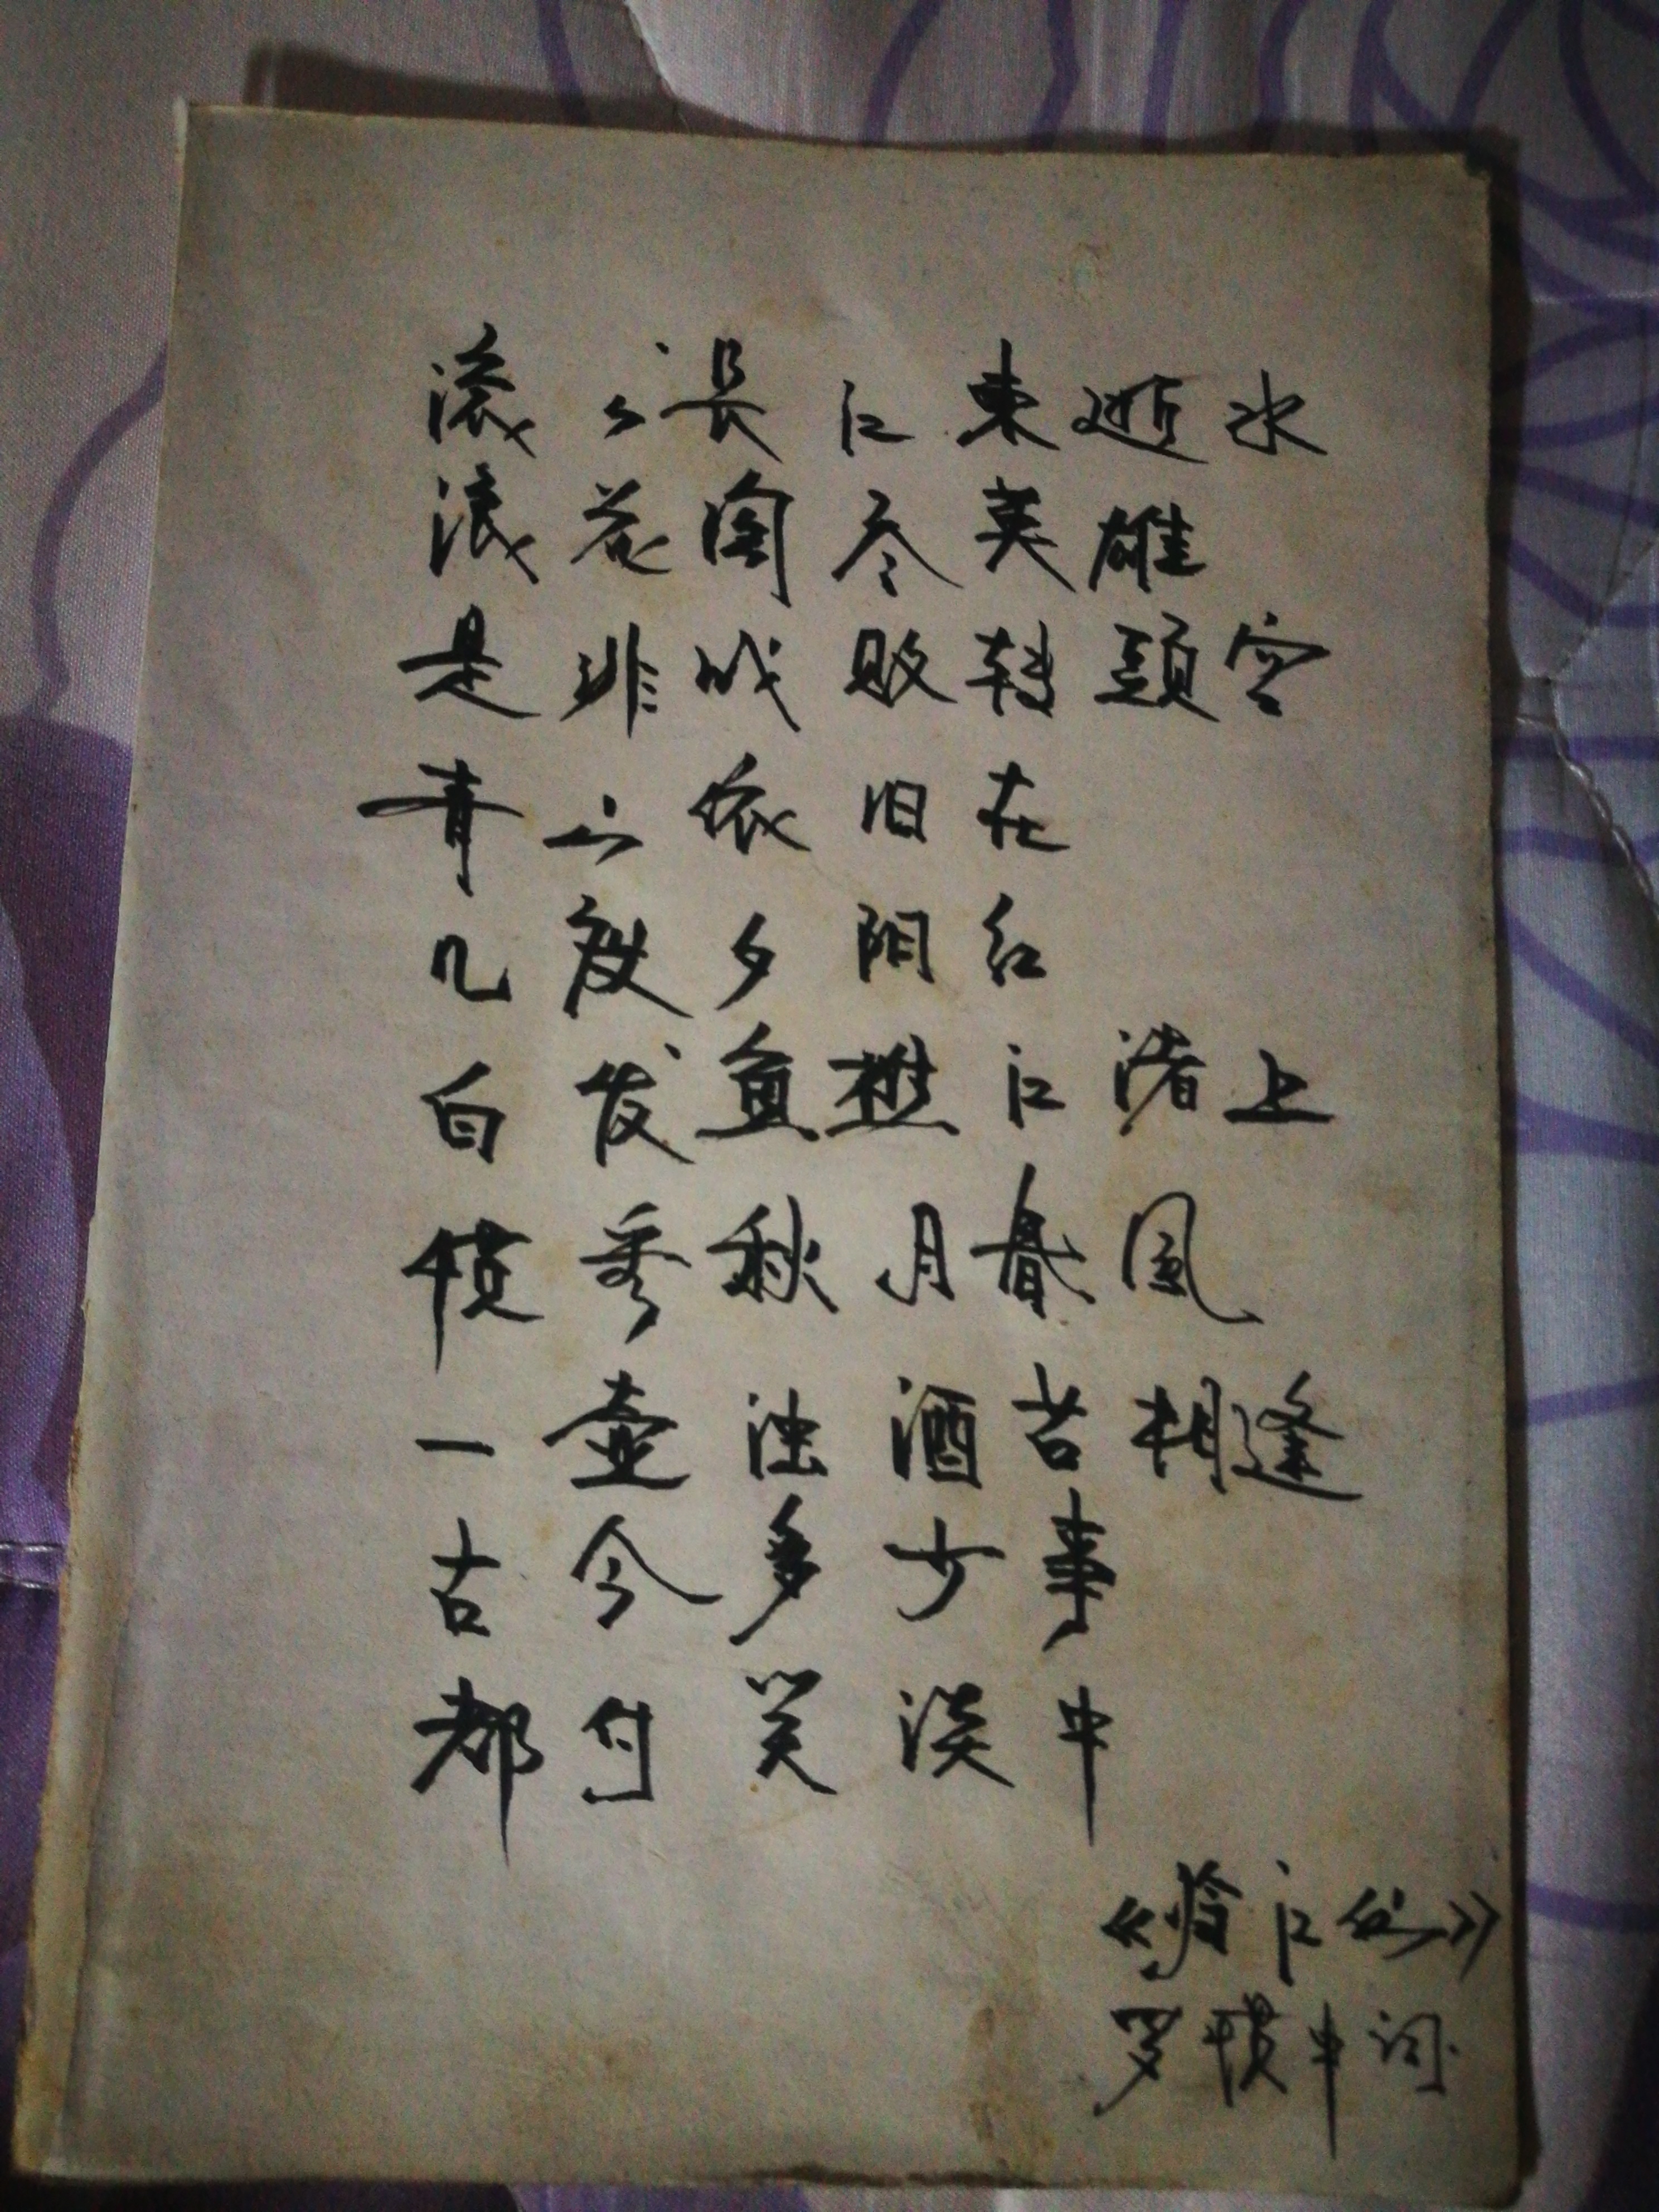 滚滚长江东逝水
浪花淘尽英雄
是非成败转头空
青山依旧在
几度夕阳红
白发鱼樵江渚上
惯看秋月春风
一壶浊酒喜相逢
古今多少事
都付笑谈中
《临江仙》
罗惯中词